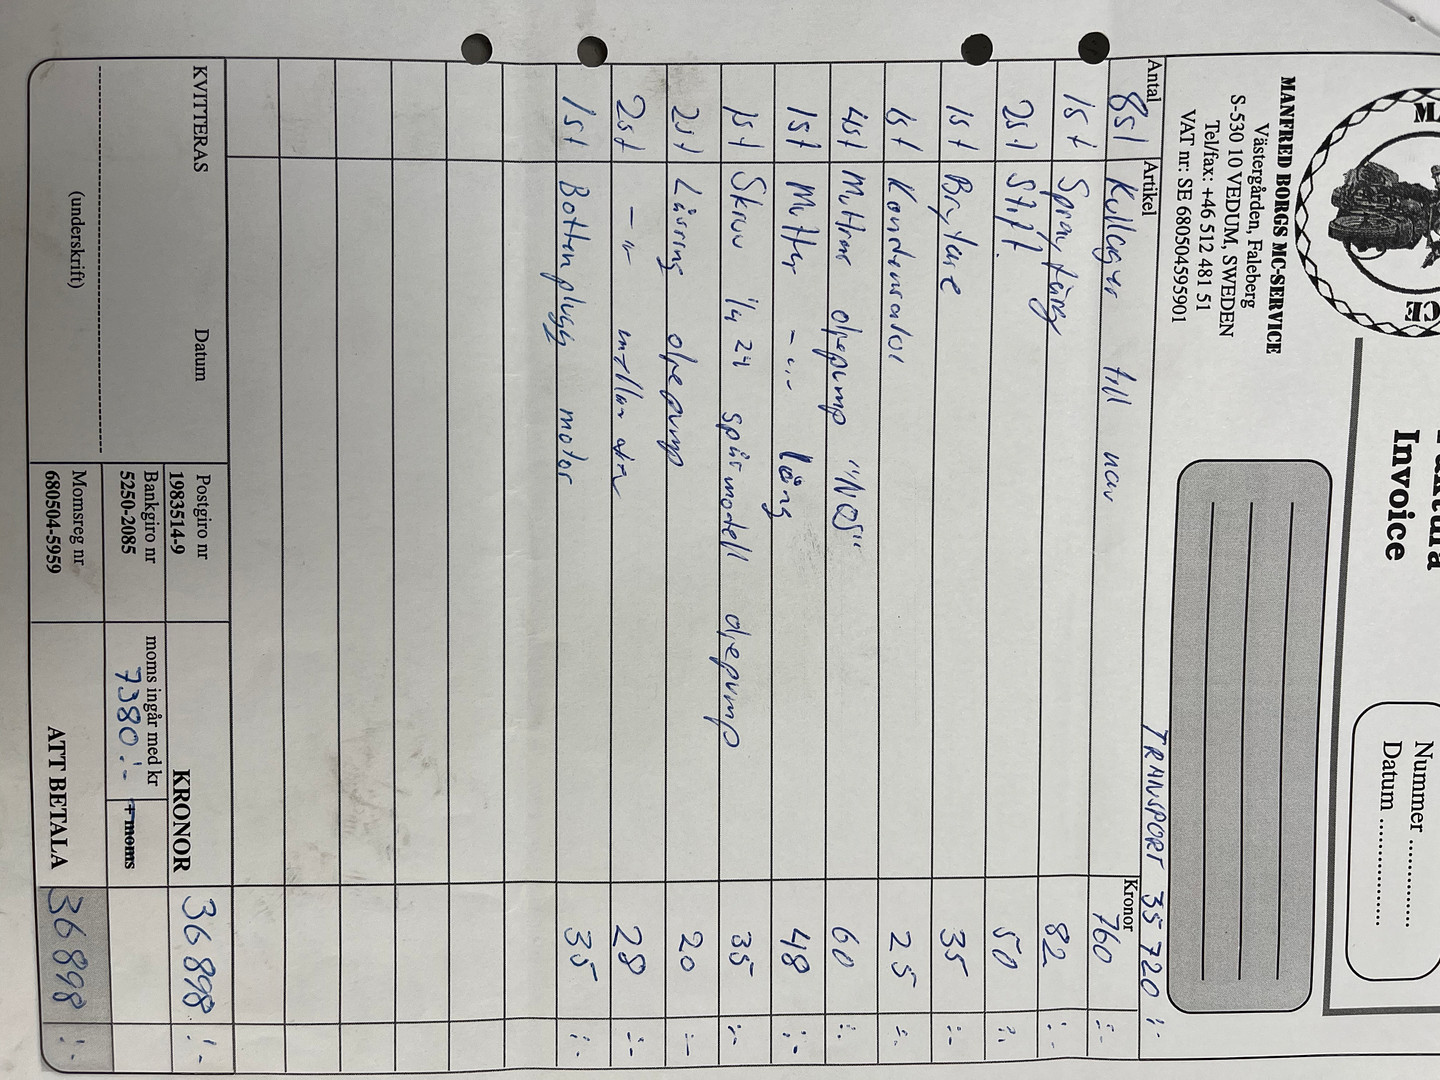 Faktura
Invoice
Nummer ..............
Datum ................
MANFRED BORGS MC-SERVICE
Västergården, Faleberg
S-530 10 VEDUM, SWEDEN
Tel/fax: +46 512 481 51
VAT nr: SE 680504595901
TRANSPORT 35720 :-
Antal Artikel Kronor
8st Kullager till nav 760 :-
1st Spraytäng 82 :-
2st Stift 50 :-
1st Brytare 35 :-
1st Kondensator 25 :-
4st Muttrar oljepump "NOS" 60 :-
1st Mutter -"- lång 48 :-
1st Skruv 1/4 24 spårmodell oljepump 35 :-
2st Låsring oljepump 20 :-
2st -"- mellan 28 :-
1st Bottenplugg motor 35 :-
KVITTERAS Datum
(underskrift)
Postgiro nr
1983514-9
Bankgiro nr
5250-2085
Momsreg nr
680504-5959
KRONOR 36898 :-
moms ingår med kr
7380:- + moms
ATT BETALA 36898 :-